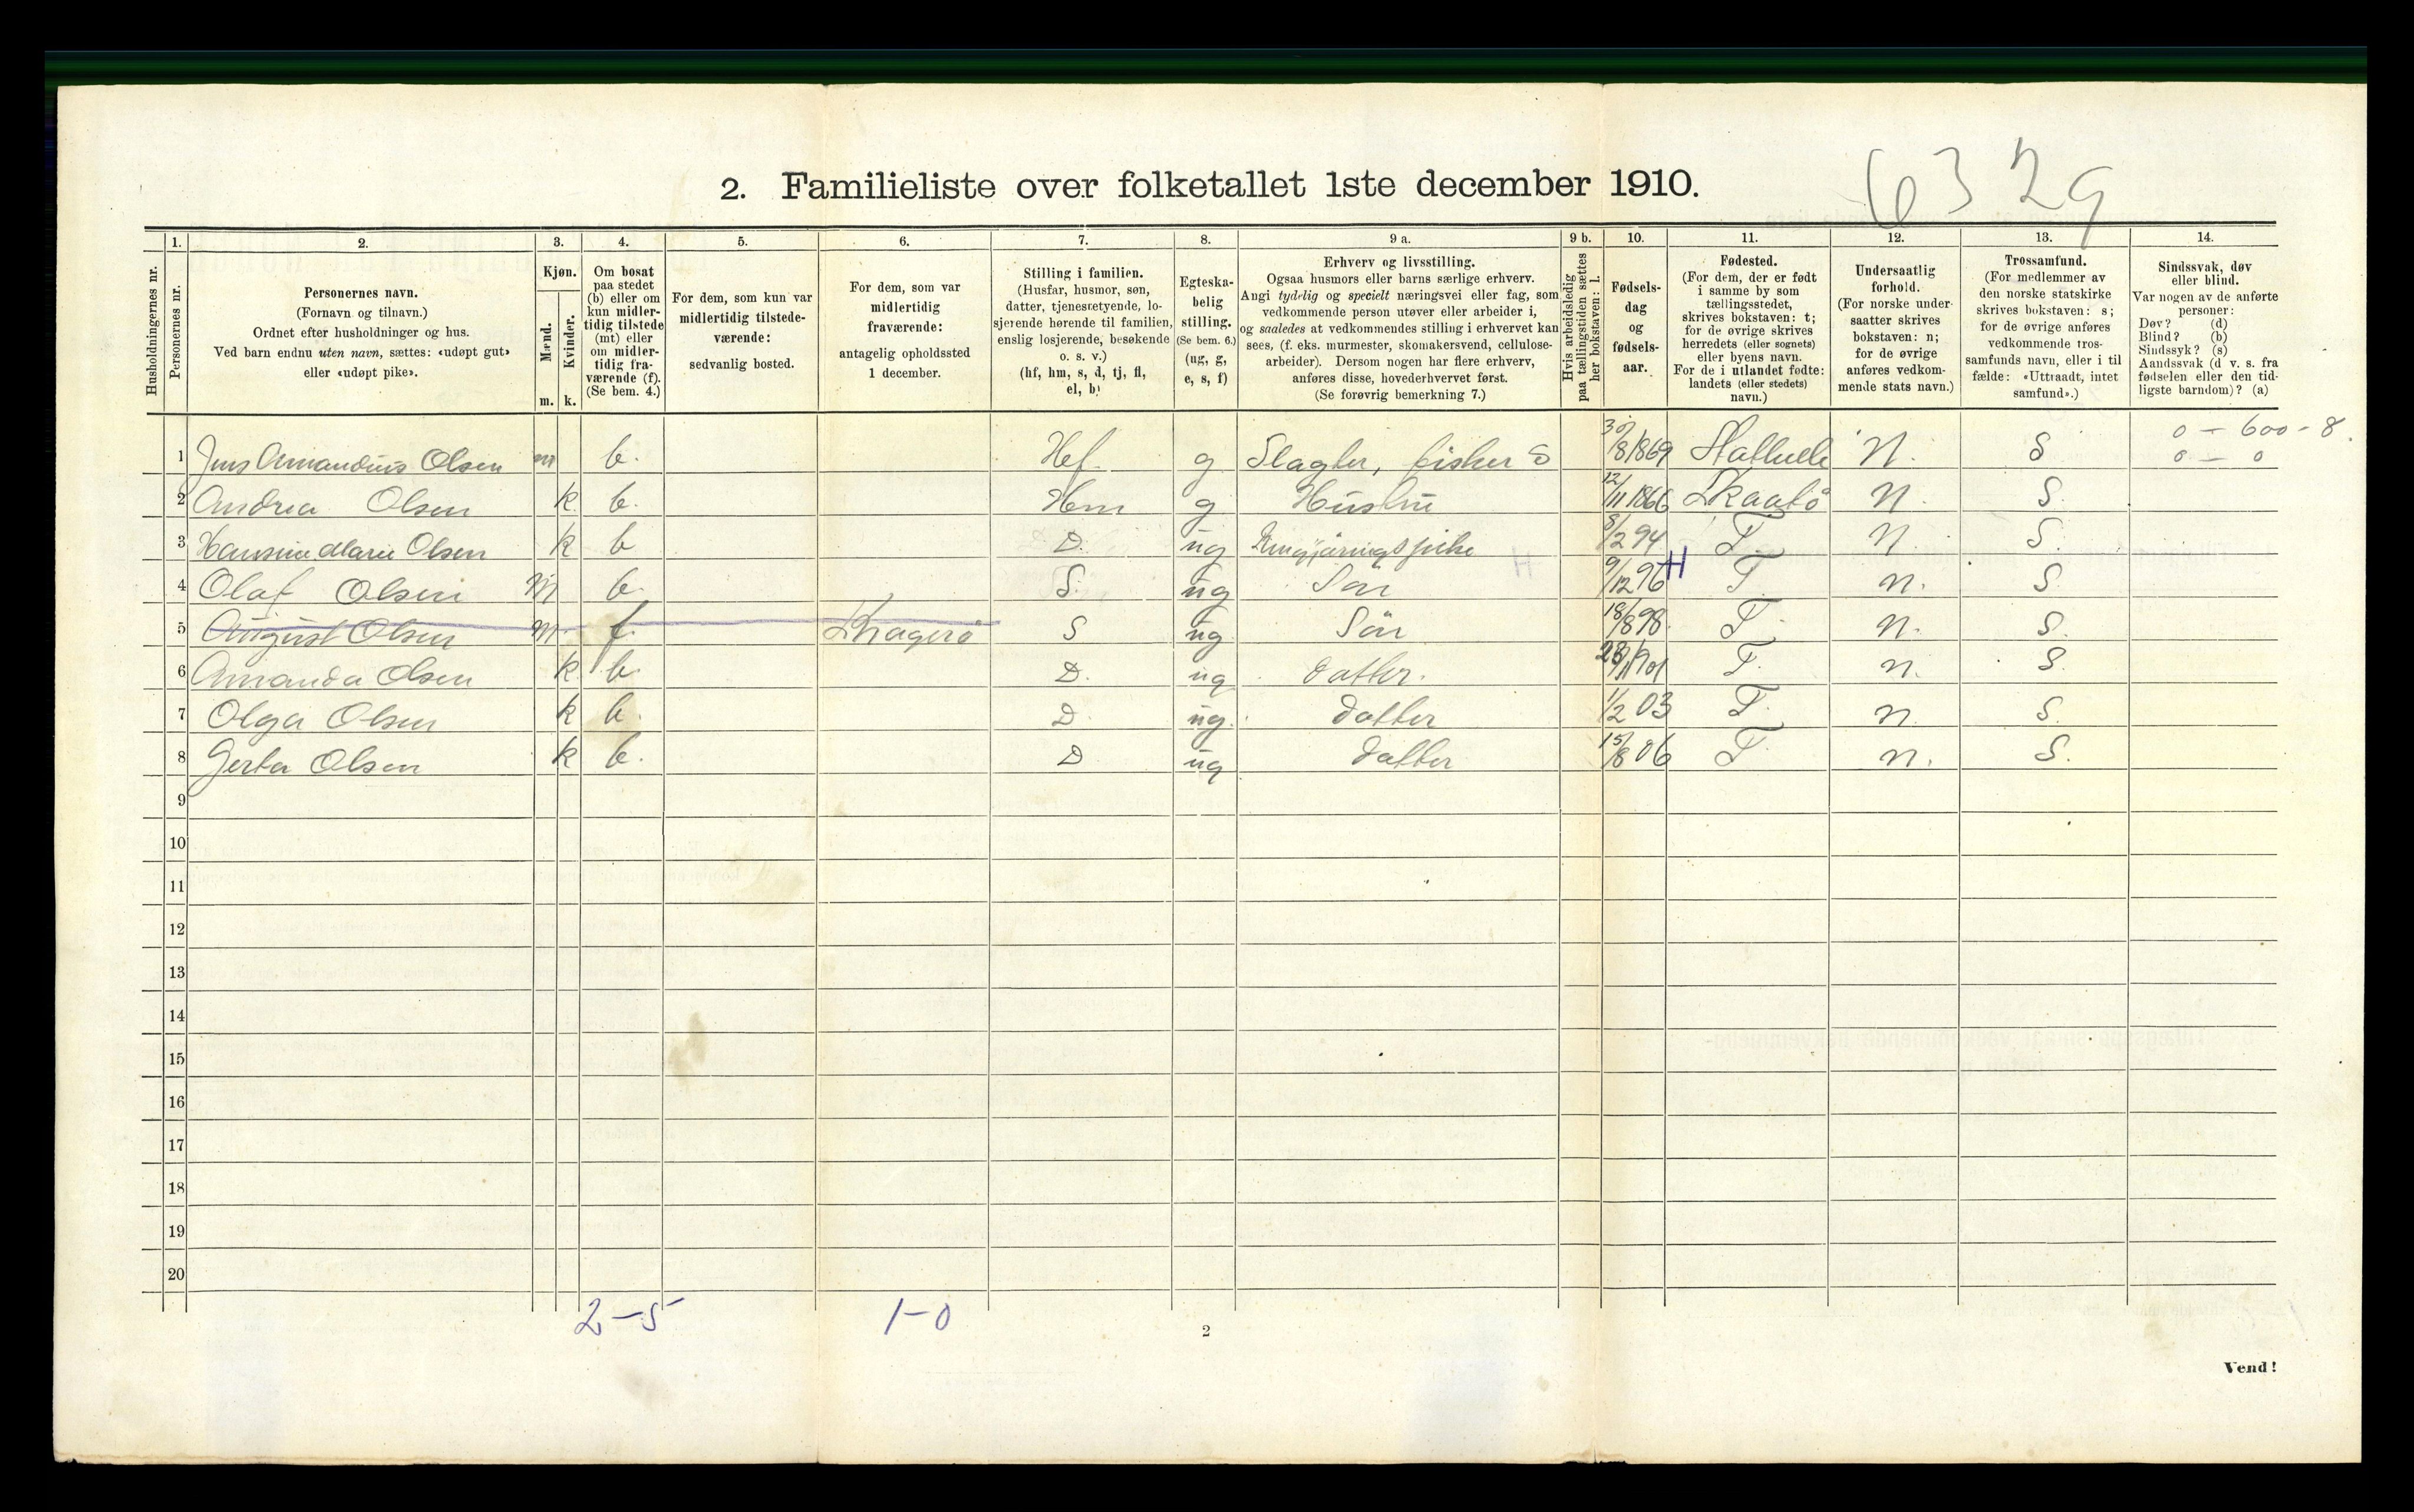 6329
2. Familieliste over folketallet 1ste december 1910.
Husholdningernes nr.
1. Personernes nr.
2. Personernes navn. (Fornavn og tilnavn.) Ordnet efter husholdninger og hus. Ved barn endnu uten navn, sættes: «udøpt gut» eller «udøpt pike».
3. Kjøn. Mænd. m. Kvinder. k.
4. Om bosat paa stedet (b) eller om kun midler-tidig tilstede (mt) eller om midler-tidig fra-værende (f). (Se bem. 4.)
5. For dem, som kun var midlertidig tilstede-værende: sedvanlig bosted.
6. For dem, som var midlertidig fraværende: antagelig opholdssted 1 december.
7. Stilling i familien. (Husfar, husmor, søn, datter, tjenestetyende, lo-sjerende hørende til familien, enslig losjerende, besøkende o. s. v.) (hf, hm, s, d, tj, fl, el, b)
8. Egteska-belig stilling. (Se bem. 6.) (ug, g, e, s, f)
9 a. Erhverv og livsstilling. Ogsaa husmors eller barns særlige erhverv. Angi tydelig og specielt næringsvei eller fag, som vedkommende person utøver eller arbeider i, og saaledes at vedkommendes stilling i erhvervet kan sees, (f. eks. murmester, skomakersvend, cellulose-arbeider). Dersom nogen har flere erhverv, anføres disse, hovederhvervet først. (Se forøvrig bemerkning 7.)
9 b. Hvis arbeidsledig paa tællingstiden sættes her bokstaven: l.
10. Fødsels-dag og fødsels-aar.
11. Fødested. (For dem, der er født i samme by som tællingsstedet, skrives bokstaven: t; for de øvrige skrives herredets (eller sognets) eller byens navn. For de i utlandet fødte: landets (eller stedets) navn.)
12. Undersaatlig forhold. (For norske under-saatter skrives bokstaven: n; for de øvrige anføres vedkom-mende stats navn.)
13. Trossamfund. (For medlemmer av den norske statskirke skrives bokstaven: s; for de øvrige anføres vedkommende tros-samfunds navn, eller i til fælde: «Uttraadt, intet samfund».)
14. Sindssvak, døv eller blind. Var nogen av de anførte personer: Døv? (d) Blind? (b) Sindssyk? (s) Aandssvak (d v. s. fra fødselen eller den tid-ligste barndom)? (a)
0 – 600 – 8.
1 Jens Amandius Olsen m b. Hf. g Slagter, fisker 30/8 1869 N. S 0 – 0
2 Andrea Olsen k b. Hm g Hustru 12/11 1866 Skaatö N. S.
3 Marie Olsen k b D. ug 8/2 94 T. N. S.
4 Olaf Olsen M b. S. ug Sön 9/12 96 H T. n. S.
5 August Olsen M. f. Kragerö S ug Sön 18/8 98 T. n. S.
6 Amanda Olsen k b. D. ug datter. 1901 T. n. S.
7 Olga Olsen k b. D. ug. datter 1/2 03 T. n. S.
8 Gerta Olsen k b. D ug datter 15/8 06 T. n. S.
9
10
11
12
13
14
15
16
17
18
19
20
2–5 1–0
2
Vend!